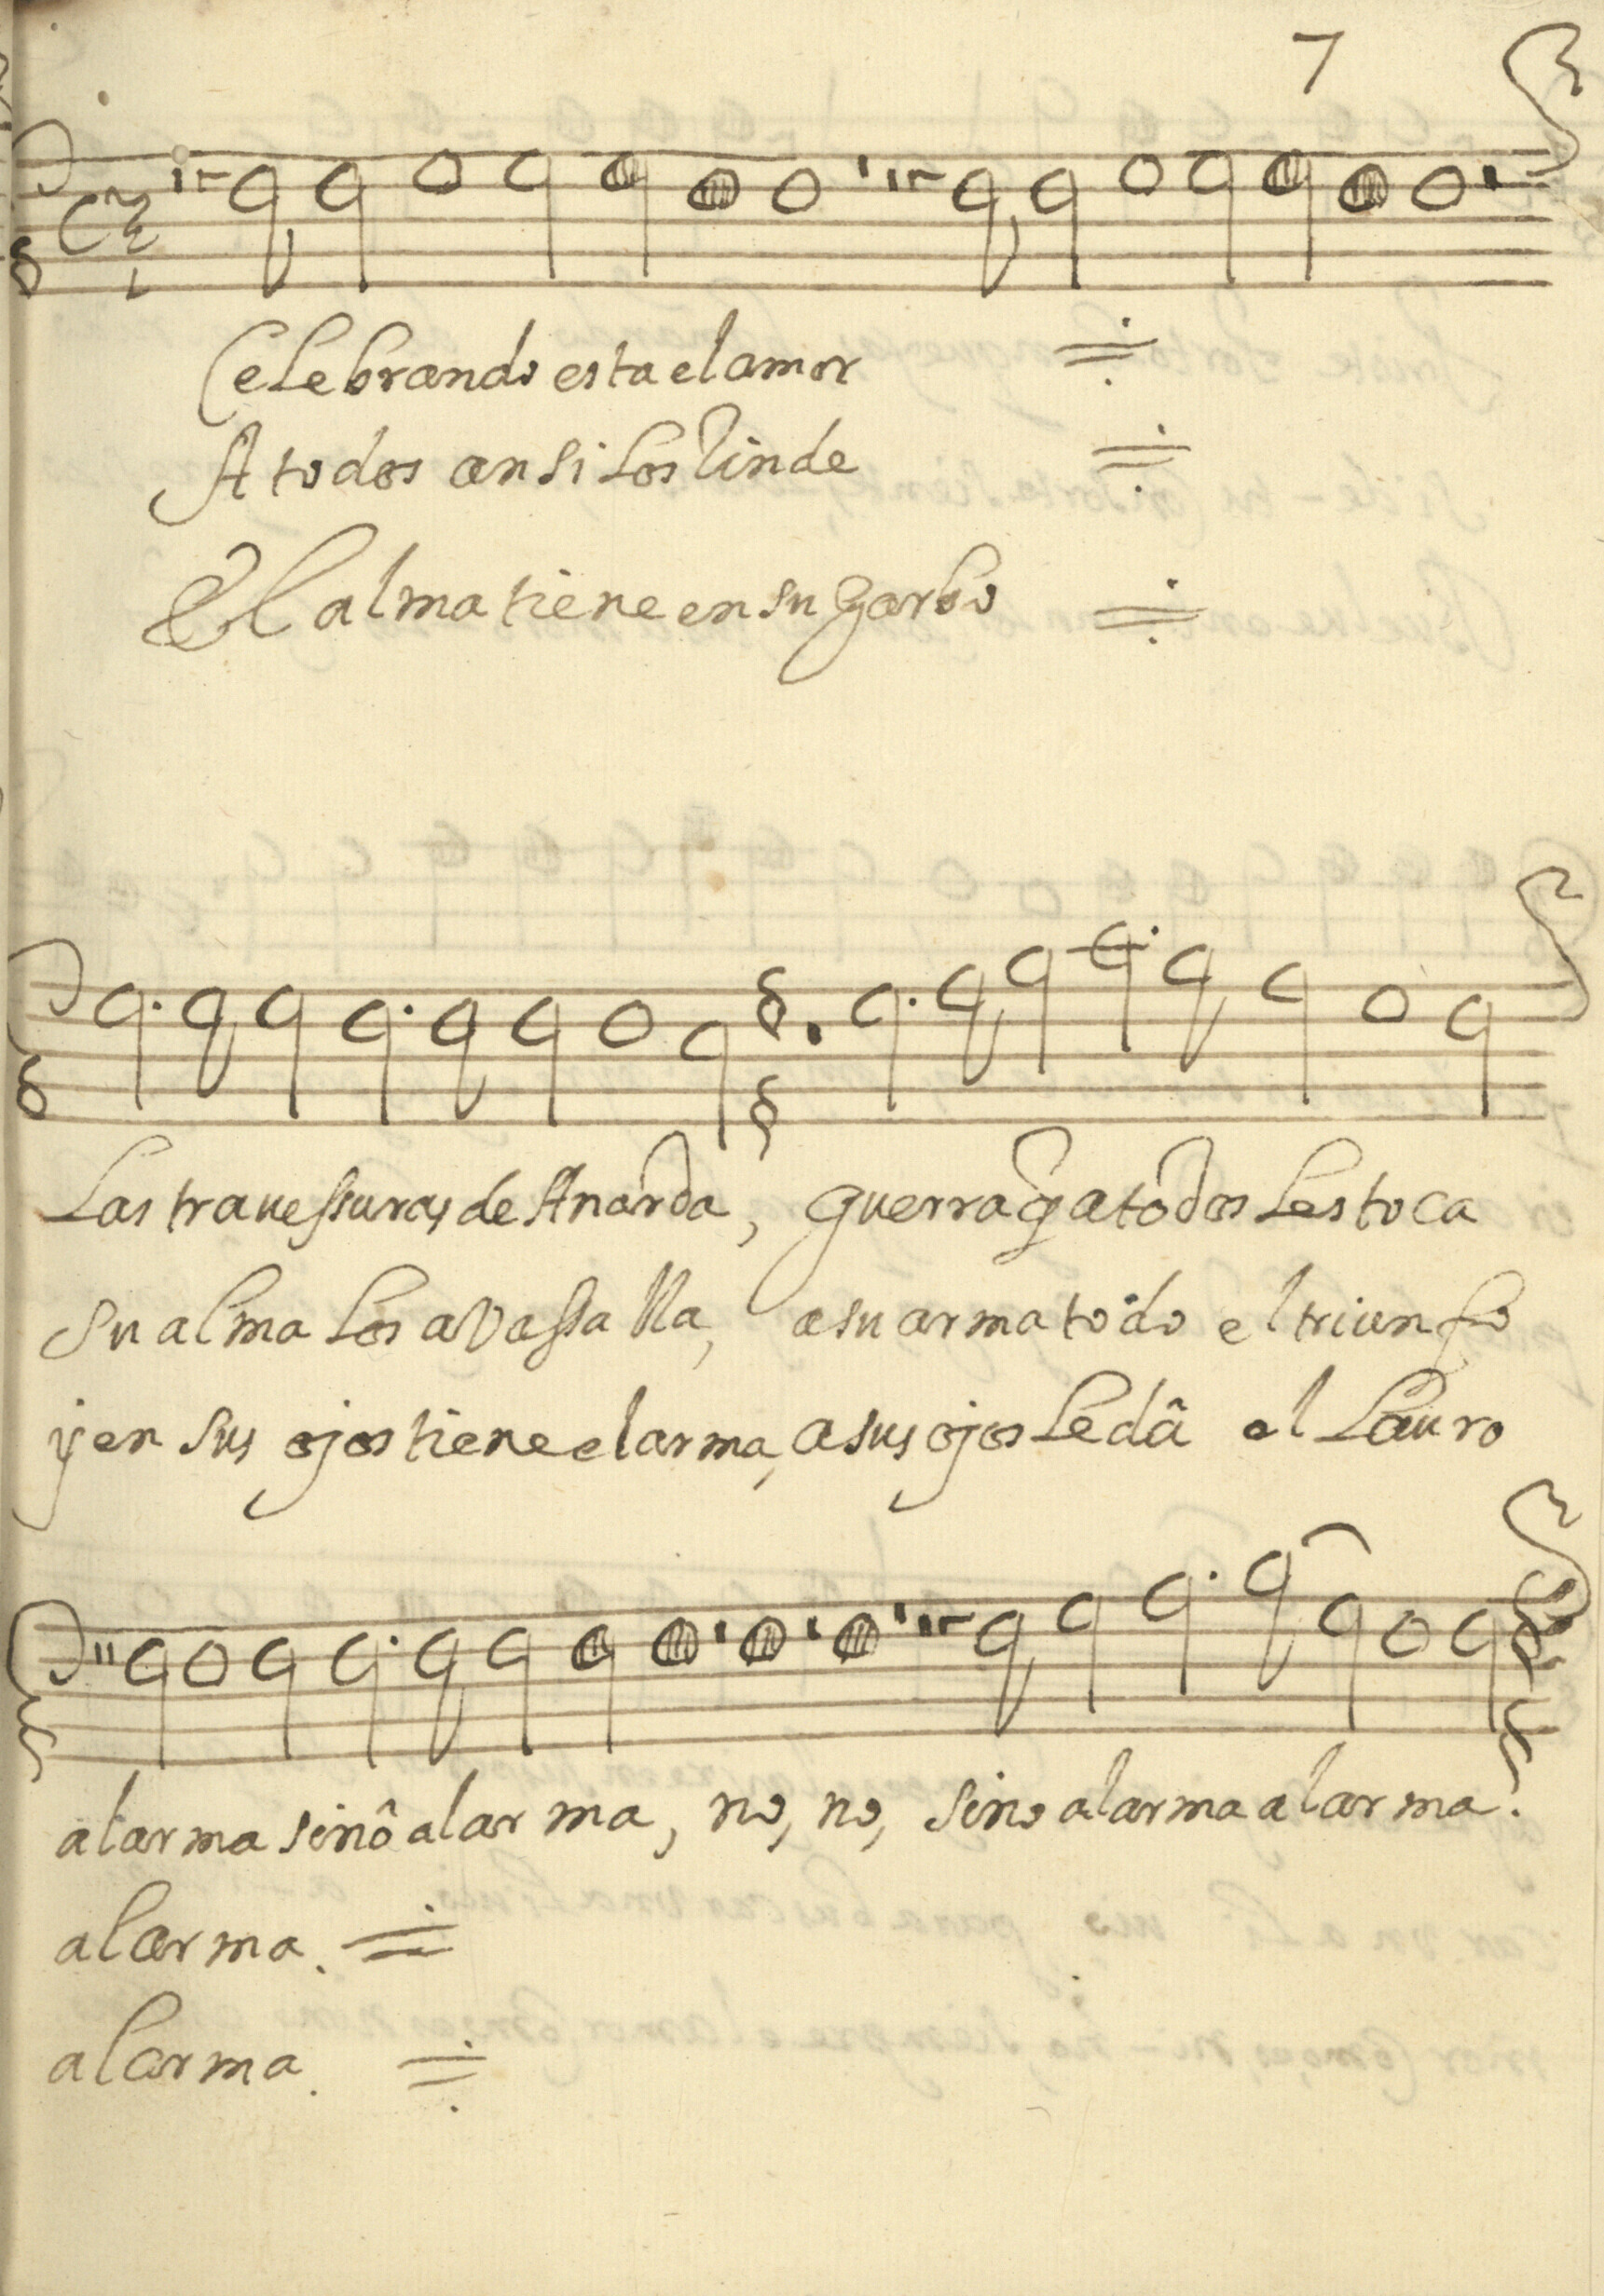 7
Celebrando esta el amor
A todos ansi los Rinde
El alma tiene en su garbo
Las travessuras de Anarda, guerra q̃ a todos les toca
Su alma los avassalla, a su arma todo el triunfo
y en sus ojos tiene el arma, a sus ojos le dâ el Lauro
al arma sinô al arma, no, no, sino al arma al arma.
al arma.
al arma.